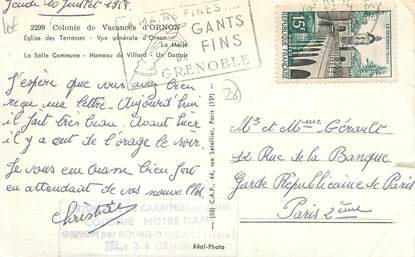 Jeudi 10 Juillet 1958
2299 Colonie de Vacances d'Ornon
Eglise des Terrasses - Vue générale d'Ornon
La Meije
La Salle Commune - Hameau de Villard - Un Dortoir
A MAINS FINES....
GANTS
FINS
GRENOBLE
15F
REPUBLIQUE FRANÇAISE
J'espère que vous avez bien
reçu ma lettre. Aujourd'hui
il fait très beau. Avant hier
il y a eut de l'orage le soir.
Je vous embrasse bien fort
en attendant de vos nouvelles.
Christian
CARRIÈRES
COLONIE NOTRE-DAME
ORNON par BOURG-D'OISANS (Isère)
TÉL. 3 à ORNON
(SB) C.A.P., 44, rue Letellier, Paris (15e)
28
Mr et Mme Gérault
12 Rue de la Banque
Garde Républicaine de Paris
Paris 2ème
Réal-Photo